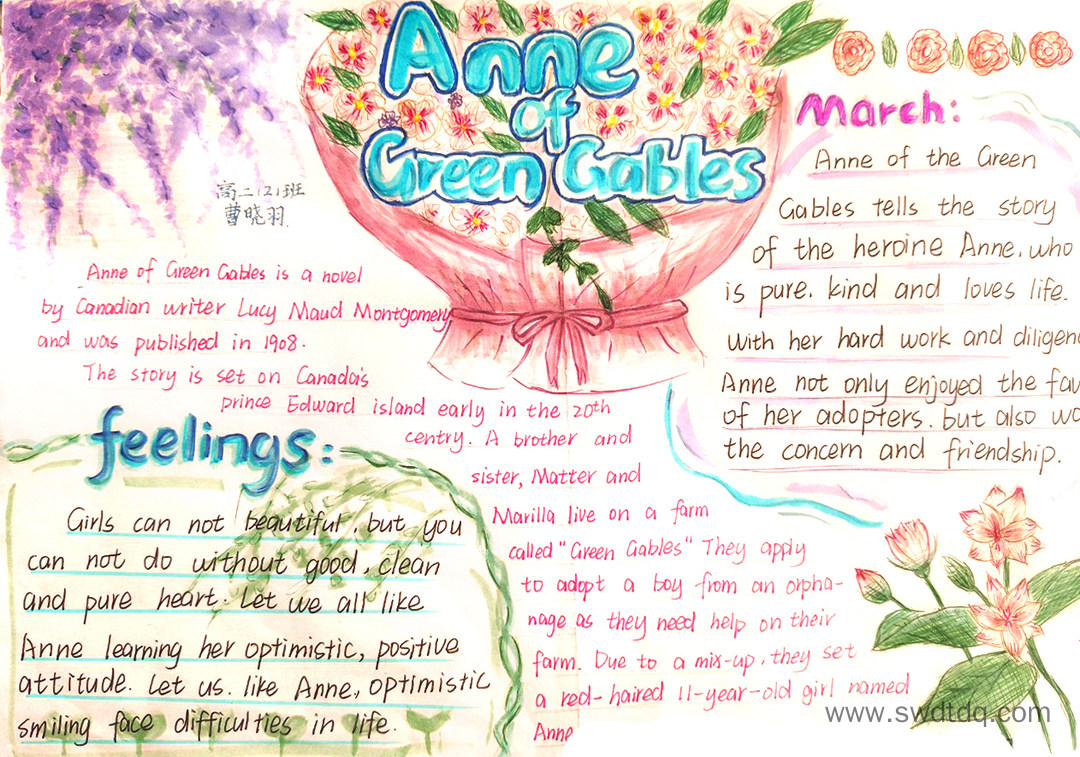 Anne
of
Green Gables
高二(2)班
曹晓羽.
Anne of Green Gables is a novel
by Canadian writer Lucy Maud Montgomery
and was published in 1908.
The story is set on Canada's
prince Edward island early in the 20th
centry. A brother and
sister, Matter and
Marilla live on a farm
called "Green Gables" They apply
to adopt a boy from an orpha-
nage as they need help on their
farm. Due to a mix-up, they set
a red-haired 11-year-old girl named
Anne
March:
Anne of the Green
Gables tells the story
of the heroine Anne, who
is pure. kind and loves life.
With her hard work and
Anne not only enjoyed the
of her adopters. but also
the concern and friendship.
feelings:
Girls can not beautiful, but you
can not do without good, clean
and pure heart. Let we all like
Anne learning her optimistic, positive
attitude. Let us. like Anne, optimistic
smiling face difficulties in life.
www.swdtdq.com